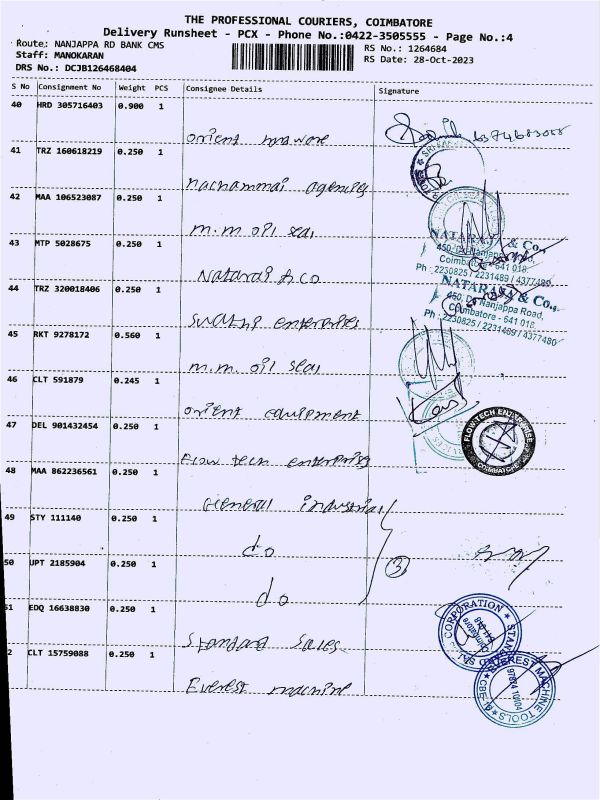 THE PROFESSIONAL COURIERS, COIMBATORE
Delivery Runsheet - PCX - Phone No.:0422-3505555 - Page No.:4
Route: NANJAPPA RD BANK CMS
RS No.: 1264684
Staff: MANOKARAN
RS Date: 28-Oct-2023
DRS No.: DCJB126468404
S No Consignment No Weight PCS Consignee Details Signature
40 HRD 305716403 0.900 1
orient
41 TRZ 160618219 0.250 1
nachammai agencies
42 MAA 106523087 0.250 1
m.m oil seal
43 MTP 5028675 0.250 1
Nataraj & co
NATARAJA & Co.,
450, Dr. Nanjappa Road,
Coimbatore - 641 018.
Ph : 2230825 / 2231489 / 4377480
44 TRZ 320018406 0.250 1
enterprises
NATARAJA & Co.,
450, Dr. Nanjappa Road,
Coimbatore - 641 018.
Ph : 2230825 / 2231489 / 4377480
45 RKT 9278172 0.560 1
m.m. oil seal
46 CLT 591879 0.245 1
orient equipment
47 DEL 901432454 0.250 1
Flow tech enterprises
FLOWTECH ENTERPRISE
COIMBATORE
48 MAA 862236561 0.250 1
General industrial
49 STY 111140 0.250 1
do
50 UPT 2185904 0.250 1
do
3
51 EDQ 16638830 0.250 1
Standard sales
STANDARD SALES CORPORATION
Coimbatore
641 018
2 CLT 15759088 0.250 1
Everest machine
EVEREST MACHINE TOOLS